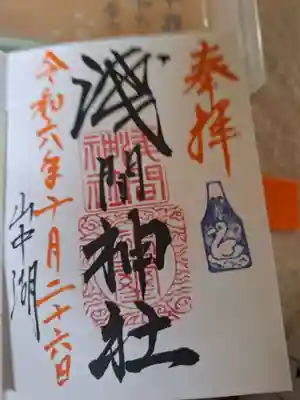 奉拝
浅間神社
山中湖
令和六年十月二十六日